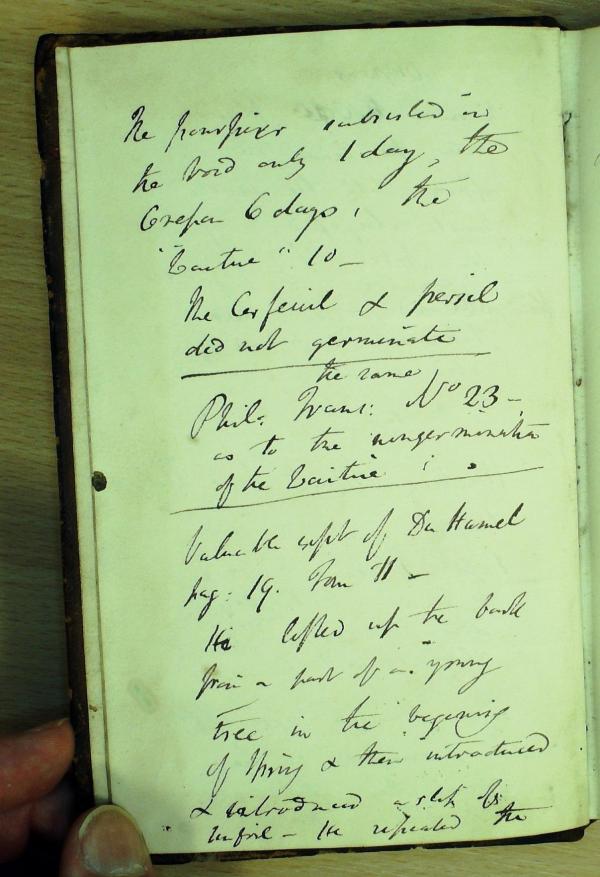 The pourpier subsisted in
the void only 1 day, the
Cresson 6 days, the
"Laitue" 10 —
The Cerfeuil & persil
did not germinate
the same
Phil: Trans: No 23 —
as to the nongermination
of the Laitue
Valuable expt of Du Hamel
pag: 19. Tom II —
He lifted up the bark
from a part of a young
tree in the begining
of Spring & then introduced
& introduced a slip of
tinfoil — He repeated the